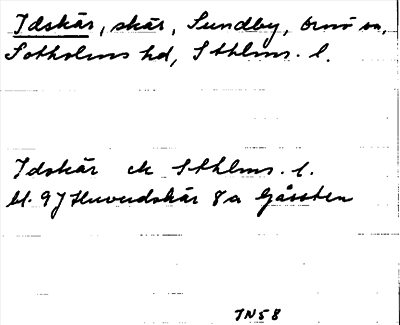 Idskär, skär, Sundby, Ornö sn,
Sotholms hd, Sthlms. l.
Idskär ek Sthlms. l.
bl. 9J Huvudskär 8a Gåssten
TN58